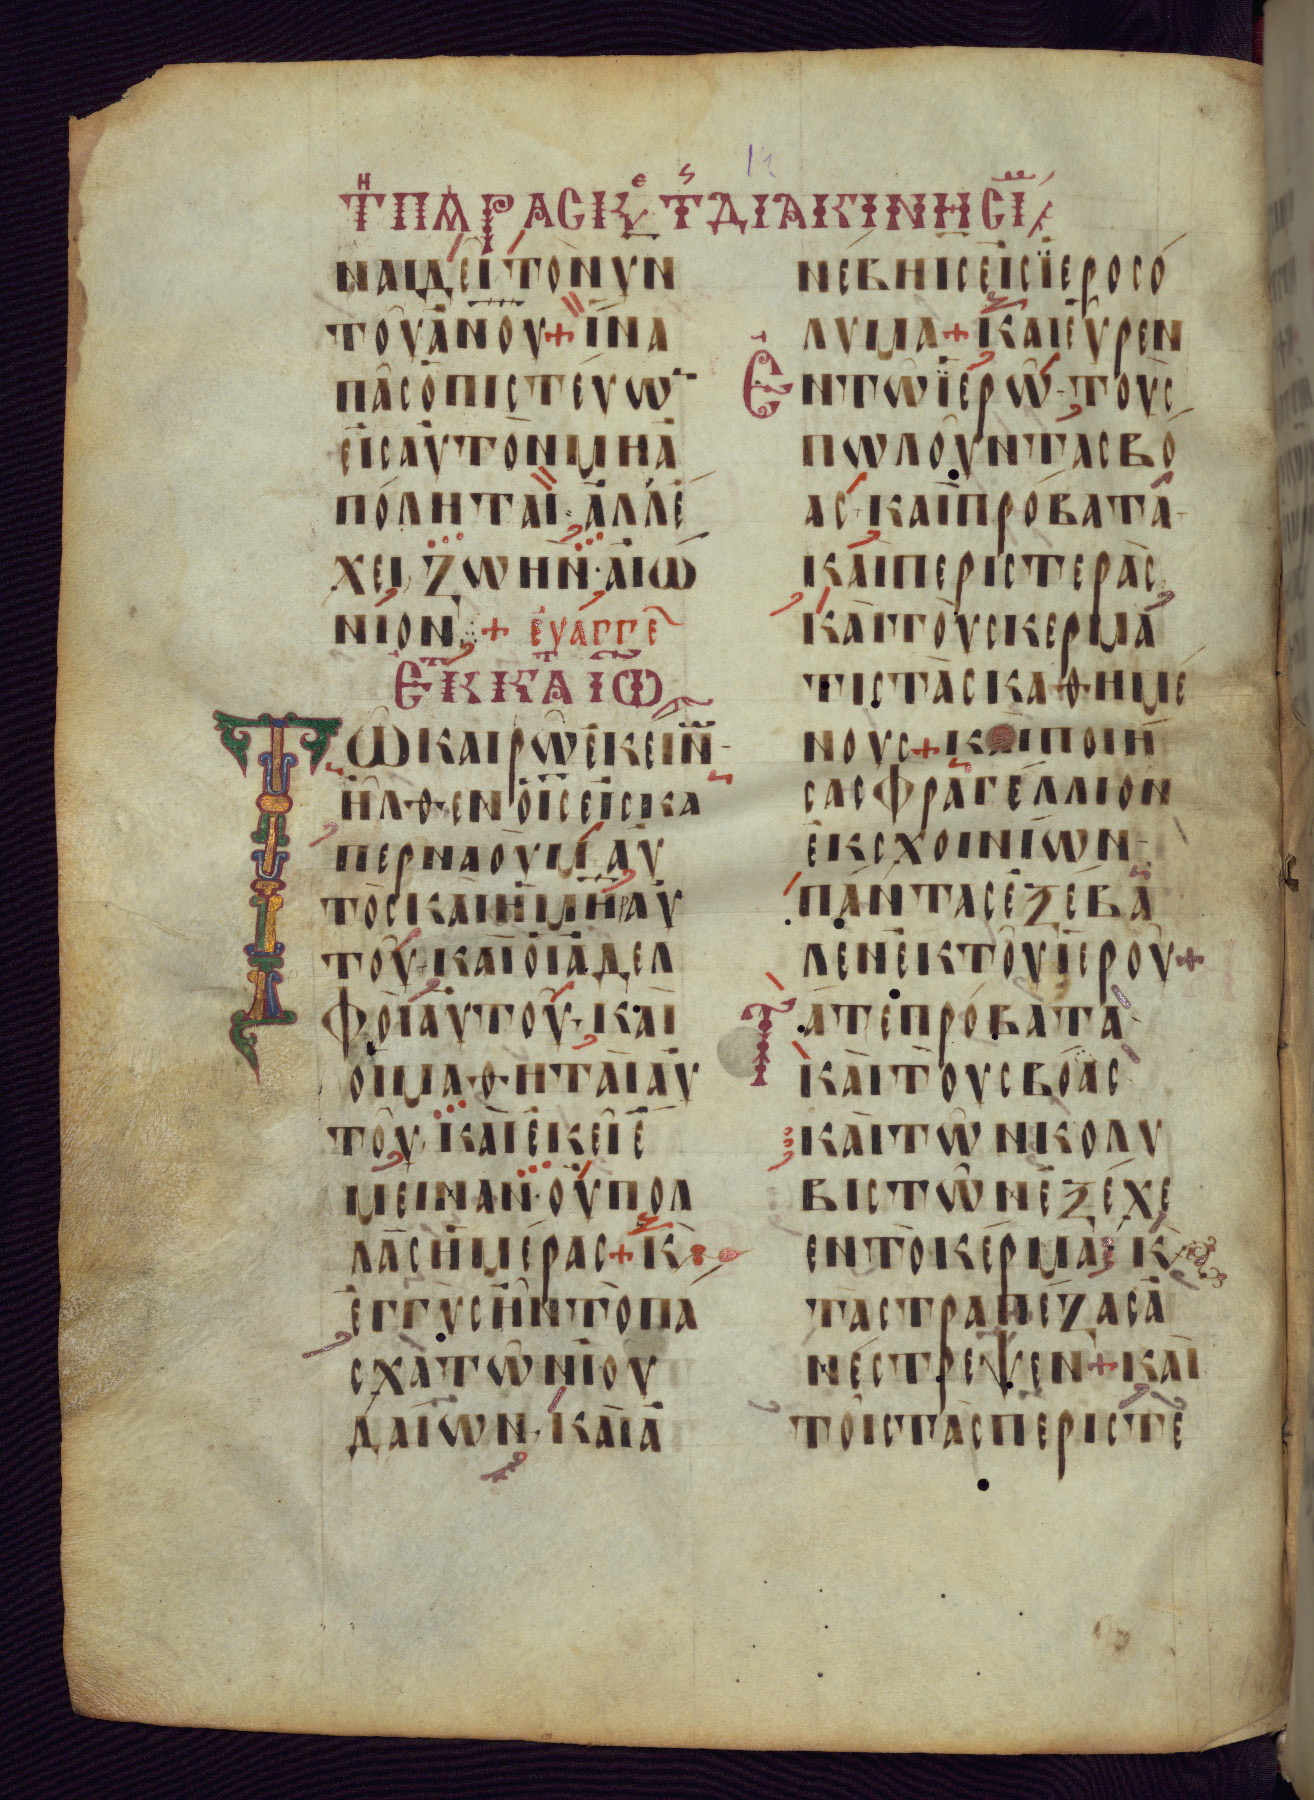 ΤΗ ΠΑΡΑΣΚΕ Τ ΔΙΑΚΙΝΗΣΙ
ναι δεῖ τὸν ὑν
τοῦ ἀνου + ἵνα
πᾶς ὁ πιστεύω
εἰς αὐτὸν μὴ ἀ
πόληται· ἀλλ' ἔ
χει ζωὴν αἰώ
νιον + εὐαγγε
ἐκ κατ ιω
Τῶ καιρῶ ἐκείν
ἦλθεν ὁ ις εἰς κα
περναοὺμ αὐ
τὸς καὶ ἡ μηρ αὐ
τοῦ + καὶ οἱ ἀδελ
φοὶ αὐτοῦ· καὶ
οἱ μαθηταὶ αὐ
τοῦ, καὶ ἐκεῖ ἔ
μειναν οὐ πολ
λὰς ἡμέρας + κ
ἐγγὺς ἦν τὸ πά
σχα τῶν ἰου
δαίων· καὶ ἀ
νέβη ις εἰς ἱεροσό
λυμα + καὶ εὗρεν
ἐν τῶ ἱερῶ· τοὺς
πωλοῦντας βό
ας· καὶ πρόβατα
καὶ περιστεράς
καὶ τοὺς κερμα
τιστὰς καθημέ
νους + καὶ ποιή
σας φραγέλλιον
ἐκ σχοινίων
πάντας ἐξέβα
λεν ἐκ τοῦ ἱεροῦ +
τά τε πρόβατα
καὶ τοὺς βόας
καὶ τῶν κολυ
βιστῶν ἐξέχε
εν τὸ κέρμα κ
τὰς τραπέζας ἀ
νέστρεψεν + καὶ
τοῖς τὰς περιστε